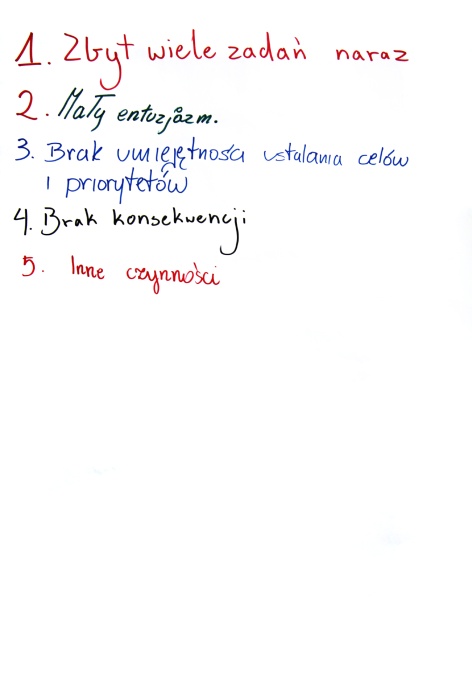 1. Zbyt wiele zadań naraz
2. Mały entuzjazm.
3. Brak umiejętności ustalania celów
i priorytetów
4. Brak konsekwencji
5. Inne czynności